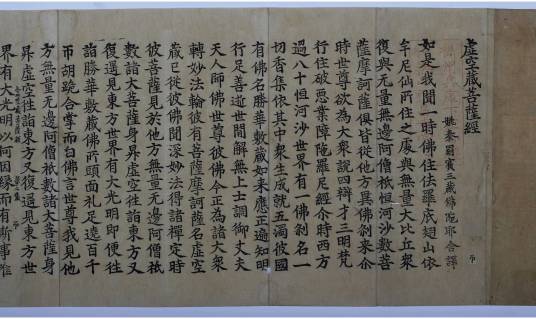 虛空藏菩薩經
姚秦罽賓三藏佛陀耶舍譯
如是我聞一時佛住佉羅底翅山依
牟尼仙所住之處與無量大比丘眾
復與無量無邊阿僧祇恒河沙數菩
薩摩訶薩俱皆從他方異佛剎來介
時世尊欲為大眾說四辯才三明梵
行住破惡業障陁羅尼經介時西方
過八十恒河沙世界有一佛剎名一
切香集依其中眾生成就五濁彼國
有佛名勝華敷藏如來應正遍知明
行足善逝世間解無上士調御丈夫
天人師佛世尊彼佛今正為諸大眾
轉妙法輪彼有菩薩摩訶薩名虛空
藏已從彼佛聞深妙法得諸禪定時
彼菩薩見於他方無量無邊阿僧祇
數諸大菩薩身昇虛空往詣東方又
復遇見東方世界有大光明即便往
詣勝華敷藏佛所頭面礼足遶百千
帀胡跪合掌而白佛言世尊我見他
方無量无邊阿僧祇數諸大菩薩身
昇虛空往詣東方又復遇見東方世
界有大光明以何因緣而有斯事唯